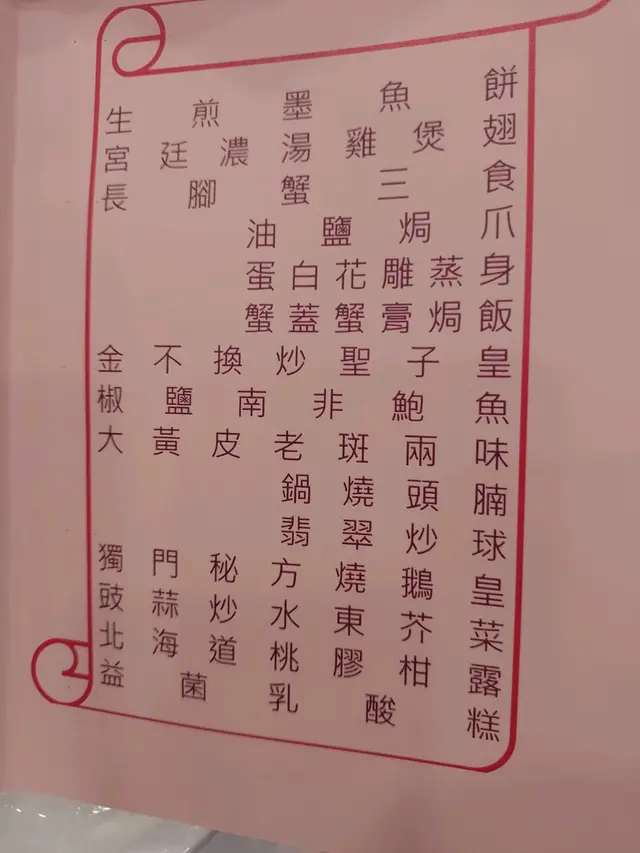 生煎墨魚餅
宮廷濃湯雞煲翅
長腳蟹三食
油鹽焗爪
蛋白花雕蒸身
蟹蓋蟹膏焗飯
金不換炒聖子皇
椒鹽南非鮑魚
大黃皮老斑兩味
鍋燒頭腩
翡翠炒球
獨門秘方燒鵝皇
豉蒜炒水東芥菜
北海道桃膠柑露
益菌乳酸糕